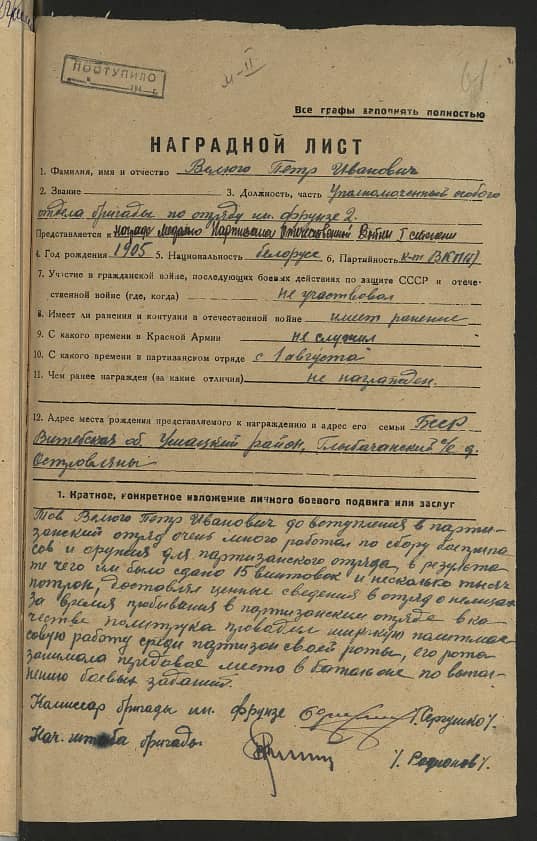 ПОСТУПИЛО
М-II
61
Все графы заполнять полностью
НАГРАДНОЙ ЛИСТ
1. Фамилия, имя и отчество Велюго Петр Иванович
2. Звание 3. Должность, часть Уполномоченный особого
отдела бригады по отряду им. Фрунзе 2.
Представляется к награде медалью Партизана Отечественной Войны I степени
4. Год рождения 1905 5. Национальность белорус 6. Партийность к-т ВКП(б)
7. Участие в гражданской войне, последующих боевых действиях по защите СССР и отече-
ственной войне (где, когда) не участвовал
8. Имеет ли ранения и контузии в отечественной войне имеет ранение
9. С какого времени в Красной Армии не служил
10. С какого времени в партизанском отряде с 1 августа
11. Чем ранее награжден (за какие отличия) не награжден.
12. Адрес места рождения представляемого к награждению и адрес его семьи БССР
Витебская об. Ушацкий район, Глыбачанский с/с д.
Островляны
1. Краткое, конкретное изложение личного боевого подвига или заслуг
Тов Велюго Петр Иванович до вступления в парти-
занский отряд очень много работал по сбору боеприпа
сов и оружия для партизанского отряда, в результа
те чего им было сдано 15 винтовок и несколько тысяч
патрон, доставлял ценные сведения в отряд о немцах
За время пребывания в партизанском отряде в ка
честве политрука проводил широкую политмас
совую работу среди партизан своей роты, его рота
занимала передовое место в батальоне по выпол-
нению боевых заданий.
Комиссар бригады им. Фрунзе /.Сергушко/.
Нач. штаба бригады /. Родионов/.